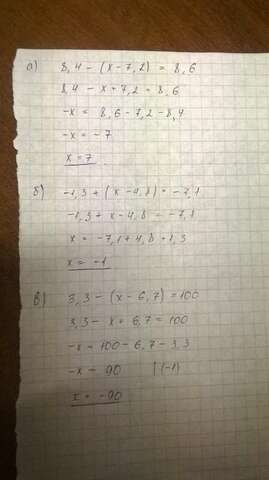 а) 8,4 - (x - 7,2) = 8,6
8,4 - x + 7,2 = 8,6
-x = 8,6 - 7,2 - 8,4
-x = -7
x = 7
б) -1,3 + (x - 4,8) = -7,1
-1,3 + x - 4,8 = -7,1
x = -7,1 + 4,8 + 1,3
x = -1
в) 3,3 - (x - 6,7) = 100
3,3 - x + 6,7 = 100
-x = 100 - 6,7 - 3,3
-x = 90 |(-1)
x = -90